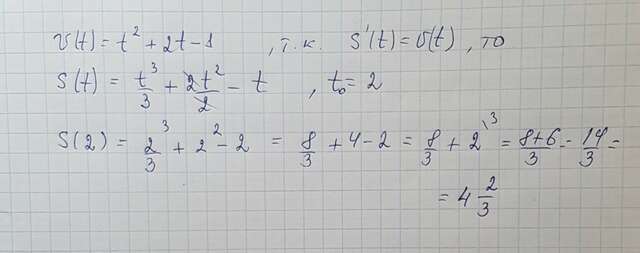 v(t) = t² + 2t - 1 , т.к. s'(t) = v(t) , то
s(t) = t³/3 + 2t²/2 - t , t₀ = 2
s(2) = 2³/3 + 2² - 2 = 8/3 + 4 - 2 = 8/3 + 2\³ = 8+6/3 = 14/3 =
= 4 2/3